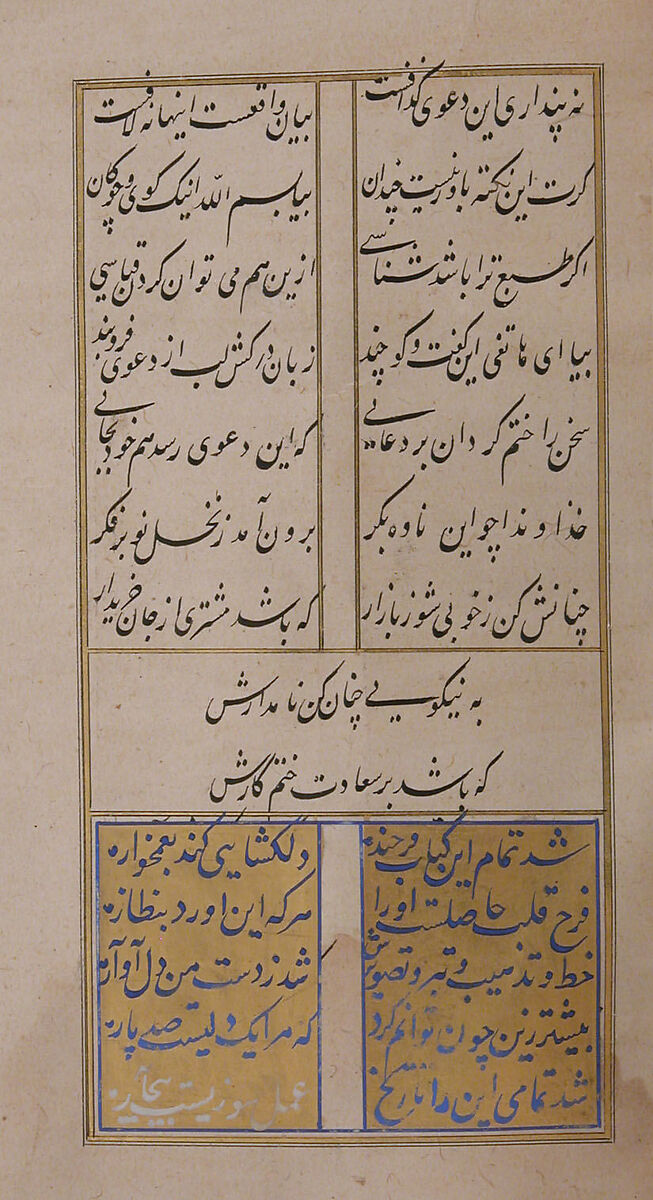 نه پنداری این دعوی گذافست بیان واقعست اینها نه لافست
کرت این نکته باور نیست چندان بیا بسم الله اینک کوی و چوکان
اکر طبع ترا باشد شناسی ازین هم می توان کردن قیاسی
بیا ای هاتفی این کفت و کو چند زبان درکش لب از دعوی فروبند
سخن را ختم کردان بر دعائی که این دعوی رسد هم خود بجائی
خداوندا چو این ناوه بکر برون آمد ز نخل نوبر فکر
چنانش کن ز خوبی شور بازار که باشد مشتری از جان خریدار
به نیکویی چنان کن نامدارش
که باشد بر سعادت ختم کارش
شد تمام این کتاب فرخنده دلکشایی کند بغمخواره
فرح قلب حاصلست اورا هر که این آورد بنظاره
خط و تذهیب و تصویرش شد ز دست من دل آواره
بیشتر زین چون توانم کرد که مرا یک دلیست صد پاره
شد تمامی این را تاریخ عمل سوزیست بیچاره